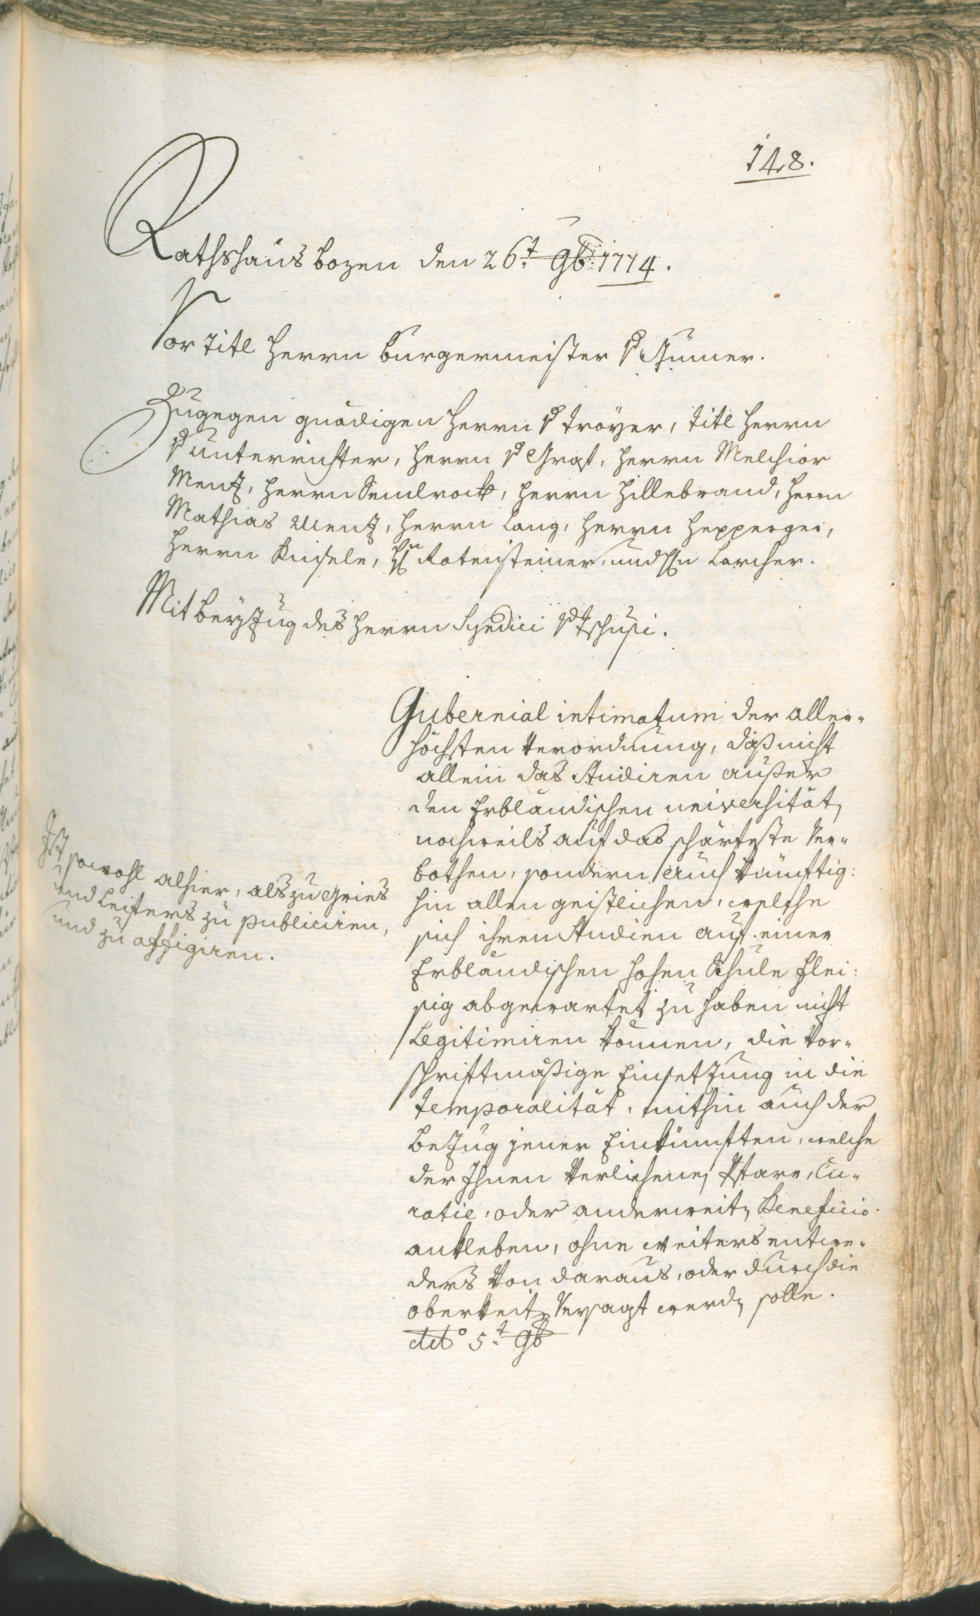 148.
Rathshaus bozen den 26t. 9b 1774.
Vor Titl Herrn burgermeister v Gumer.
Zugegen gnädigen Herrn v Troyer, Titl Herrn
v unterrichter, Herrn v Graf, Herrn Melchior
Menz, Herrn Semlrock, Herrn Hillebrand, Herrn
Mathias Menz, Herrn Lang, Herrn Hepperger,
Herrn Kneisele, Hn Rotensteiner, und Hn Larcher.
Mit beyzug des Herrn Syndici v Tschusi.
Gubernial intimatum der aller-
höchsten Verordnung, daß nicht
allein das Studiren ausser
den Erbländischen universität,
nochmals auf das schärfeste Ver-
bothen, sondern auch künftig:
hin allen geistlichen, welche
sich ihren Studien auf einer
Erbländischen hohen Schule flei:
sig abgewartet zu haben nicht
Legitimiren können, die Vor-
schriftmäßige Einsetzung in die
temporalität, mithin auch der
bezug jener Einkünften, welche
der Ihnen Verliehenen Pfarr, Cu-
ratie, oder anderweit, Beneficio
ankleben, ohne weiters entwe-
ders Von daraus, oder durch die
oberkeit, Versagt werd, solle.
ddo 5t. 9b
Ist sowohl alhier, als zu Gries
und Leifers zu publiciren,
und zu affigiren.